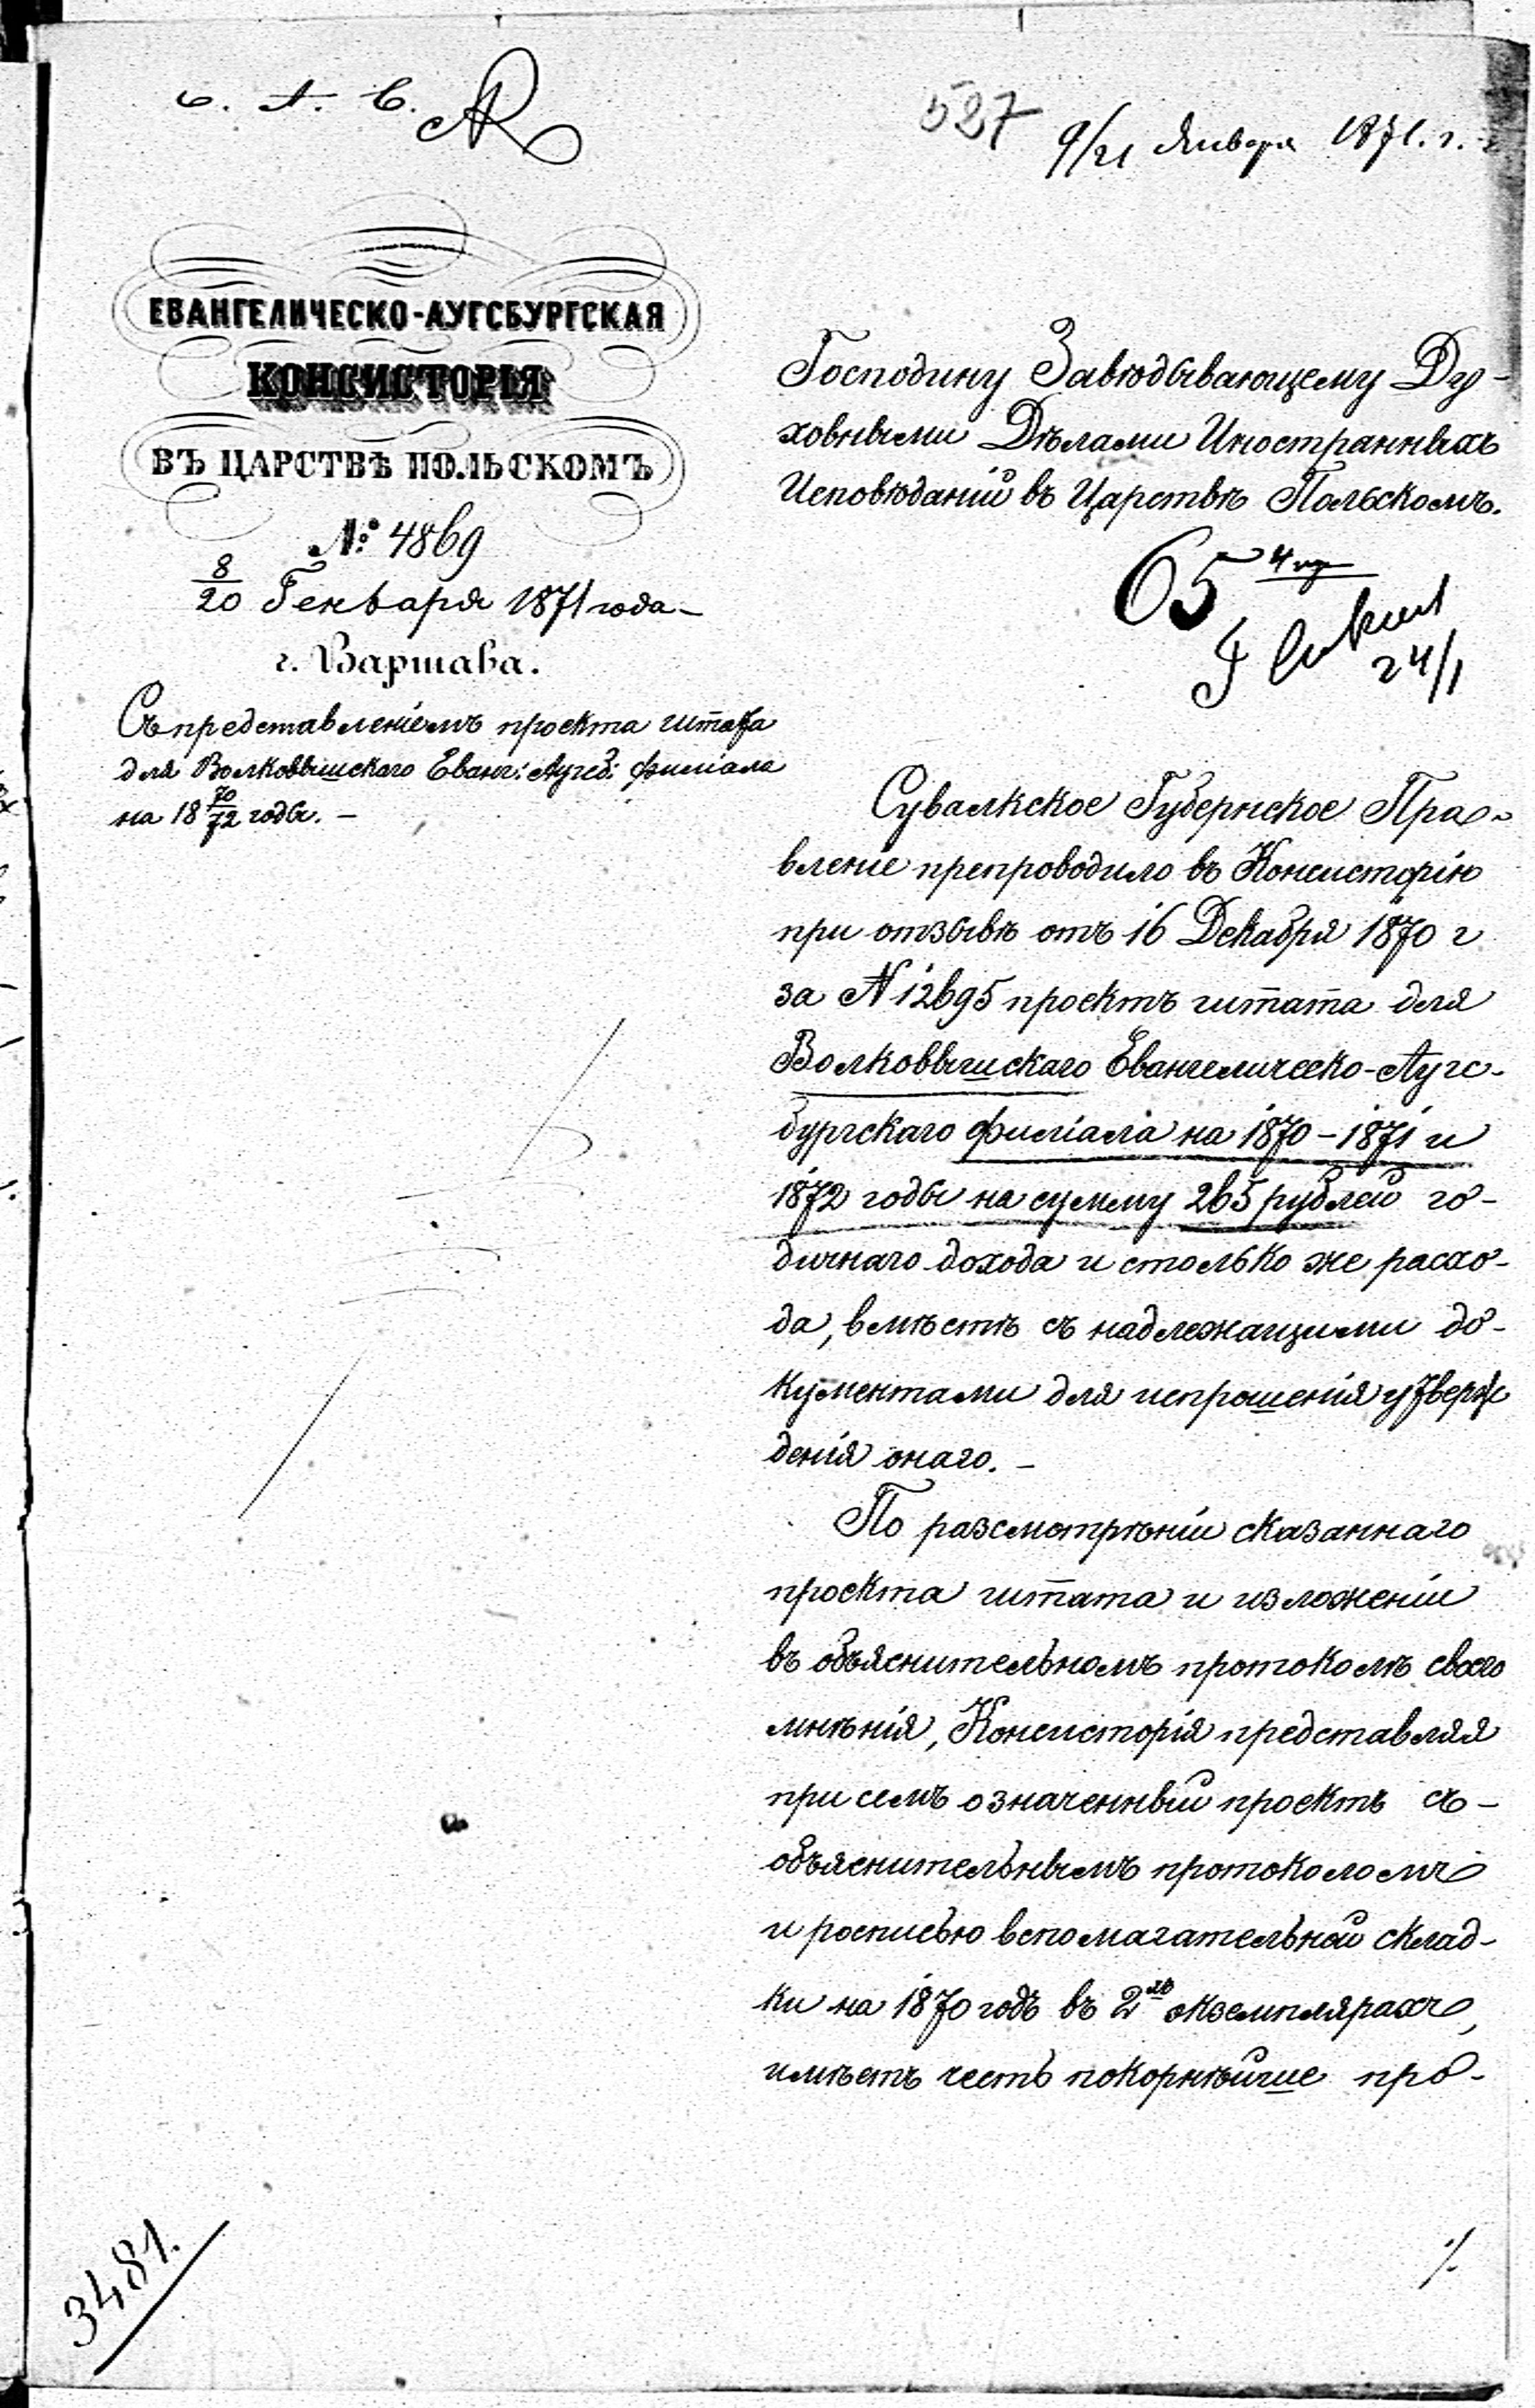 527
9/21 Января 1871. г.
ЕВАНГЕЛИЧЕСКО-АУГСБУРГСКАЯ
КОНСИСТОРІЯ
ВЪ ЦАРСТВѢ ПОЛЬСКОМЪ
№: 4869
8/20 Генваря 1871 года –
г. Варшава.
Съ представленіемъ проекта штата
для Волковышскаго Еванг: Аугсб: филіала
на 18 70/72 годы. –
Господину Завѣдывающему Ду-
ховными Дѣлами Иностранныхъ
Исповѣданій въ Царствѣ Польскомъ.
65
24/1
Сувалкское Губернское Пра-
вленіе препроводило въ Консисторію
при отзывѣ отъ 16 Декабря 1870 г
за N 12695 проектъ штата для
Волковышскаго Евангелическо-Аугс-
бургскаго филіала на 1870 – 1871 и
1872 годы на сумму 265 рублей го-
дичнаго дохода и столько же расхо-
да, вмѣстѣ съ надлежащими до-
кументами для испрошенія утверж
денія онаго. –
По разсмотрѣніи сказаннаго
проекта штата и изложеніи
въ объяснительномъ протоколѣ своего
мнѣнія, Консисторія представляя
при семъ означенный проектъ съ –
объяснительнымъ протоколомъ
и росписью вспомагательной склад-
ки на 1870 годъ въ 2хъ экземплярахъ,
имѣетъ честь покорнѣйше про-
3481.
./.